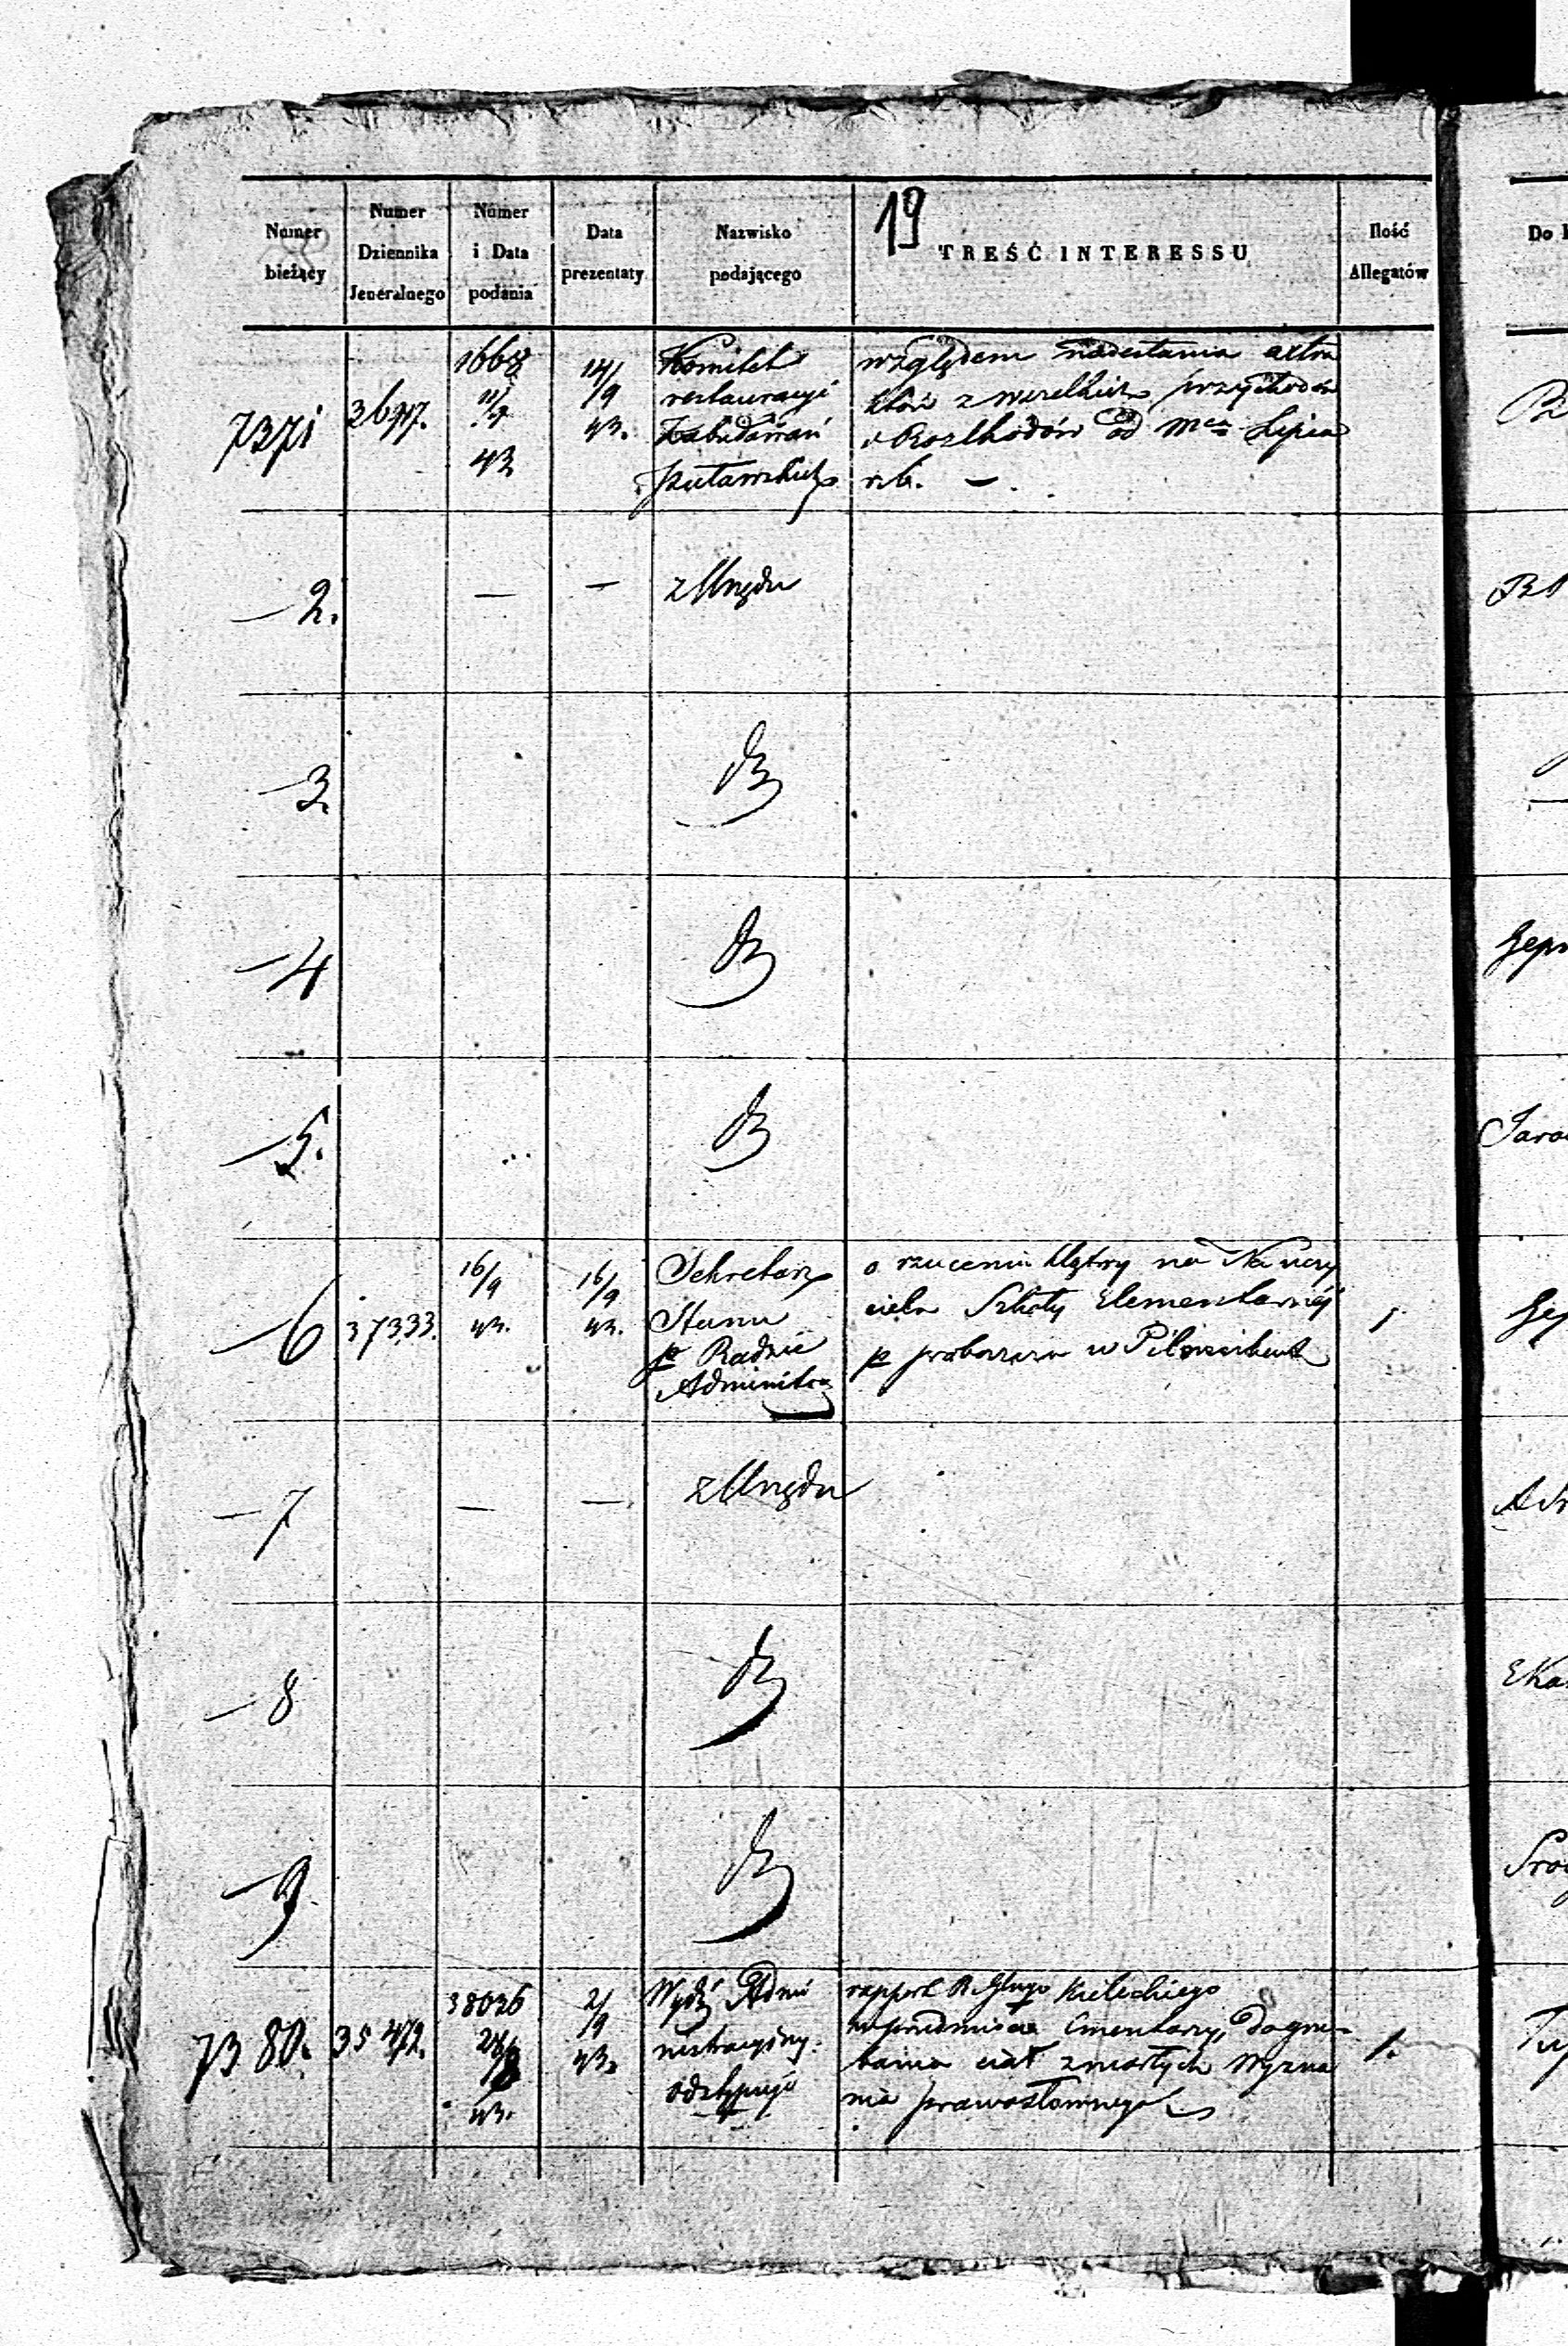 19
Numer bieżący
Numer Dziennika Jeneralnego
Numer i Data podania
Data prezentaty
Nazwisko podającego
TREŚĆ INTERESSU
Ilość Allegatów
7371
1668
11/9
43
14/9
43.
Komitet
restauracyi
Zabudowań
Puławskich
względem nadesłania extra
któw z wszelkich przychodów
i Rozchodów od Mca Lipca
r.b. —
— 2.
—
—
z Urzędu
— 3.
— 4
— 5.
— 6
37333.
16/9
43.
16/9
43.
Sekretarz
Stanu
p Radzie
Administra
o rzuceniu klątwy na Nauczy
ciela Szkoły Elementarnéj
p proboszcza w
1
— 7
—
—
z Urzędu
— 8
— 9
7380.
35472.
38026
43.
2/9
43.
Wydź Admi
nistracyjny
odstępuje
rapport Kieleckiego
w przedmiocie Cmentarzy, do grze-
bania ciał zmarłych Wyzna
nia prawosławnego
1.
Do